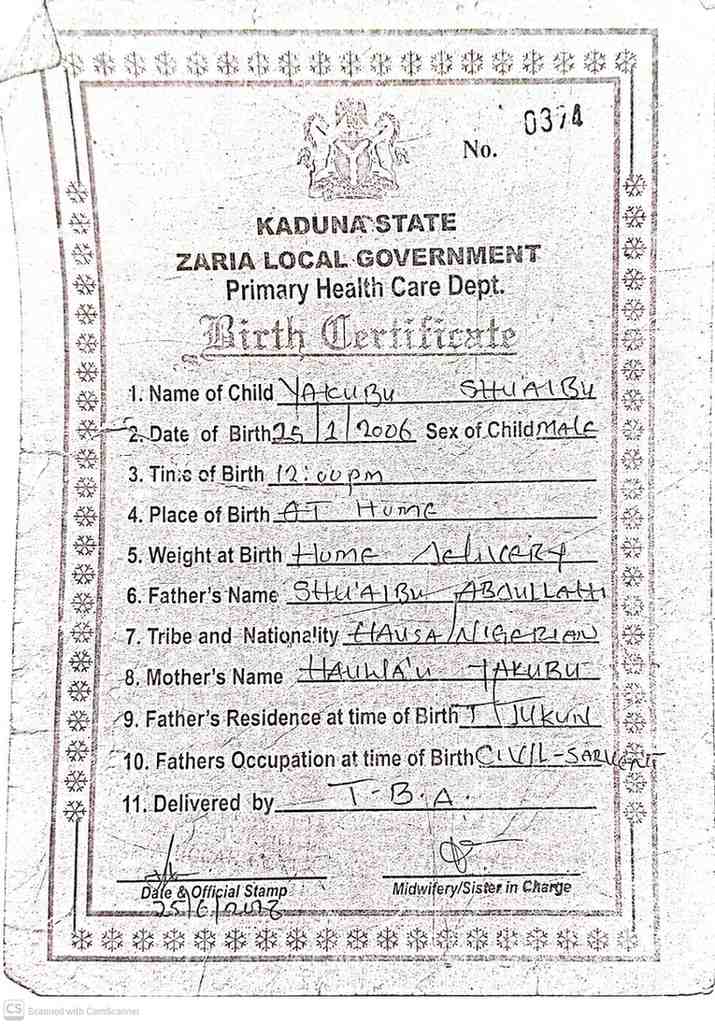 No. 0374
KADUNA STATE
ZARIA LOCAL GOVERNMENT
Primary Health Care Dept.
Birth Certificate
1. Name of Child YAKUBU SHU'AIBU
2. Date of Birth 25/1/2006 Sex of Child MALE
3. Time of Birth 12:00pm
4. Place of Birth AT HOME
5. Weight at Birth HOME DELIVERY
6. Father's Name SHU'AIBU ABDULLAHI
7. Tribe and Nationality HAUSA/NIGERIAN
8. Mother's Name HAUWA'U YAKUBU
9. Father's Residence at time of Birth T/JUKUN
10. Fathers Occupation at time of Birth CIVIL-SARVENT
11. Delivered by T.B.A.
Date & Official Stamp
Midwifery/Sister in Charge
25/6/
CS Scanned with CamScanner